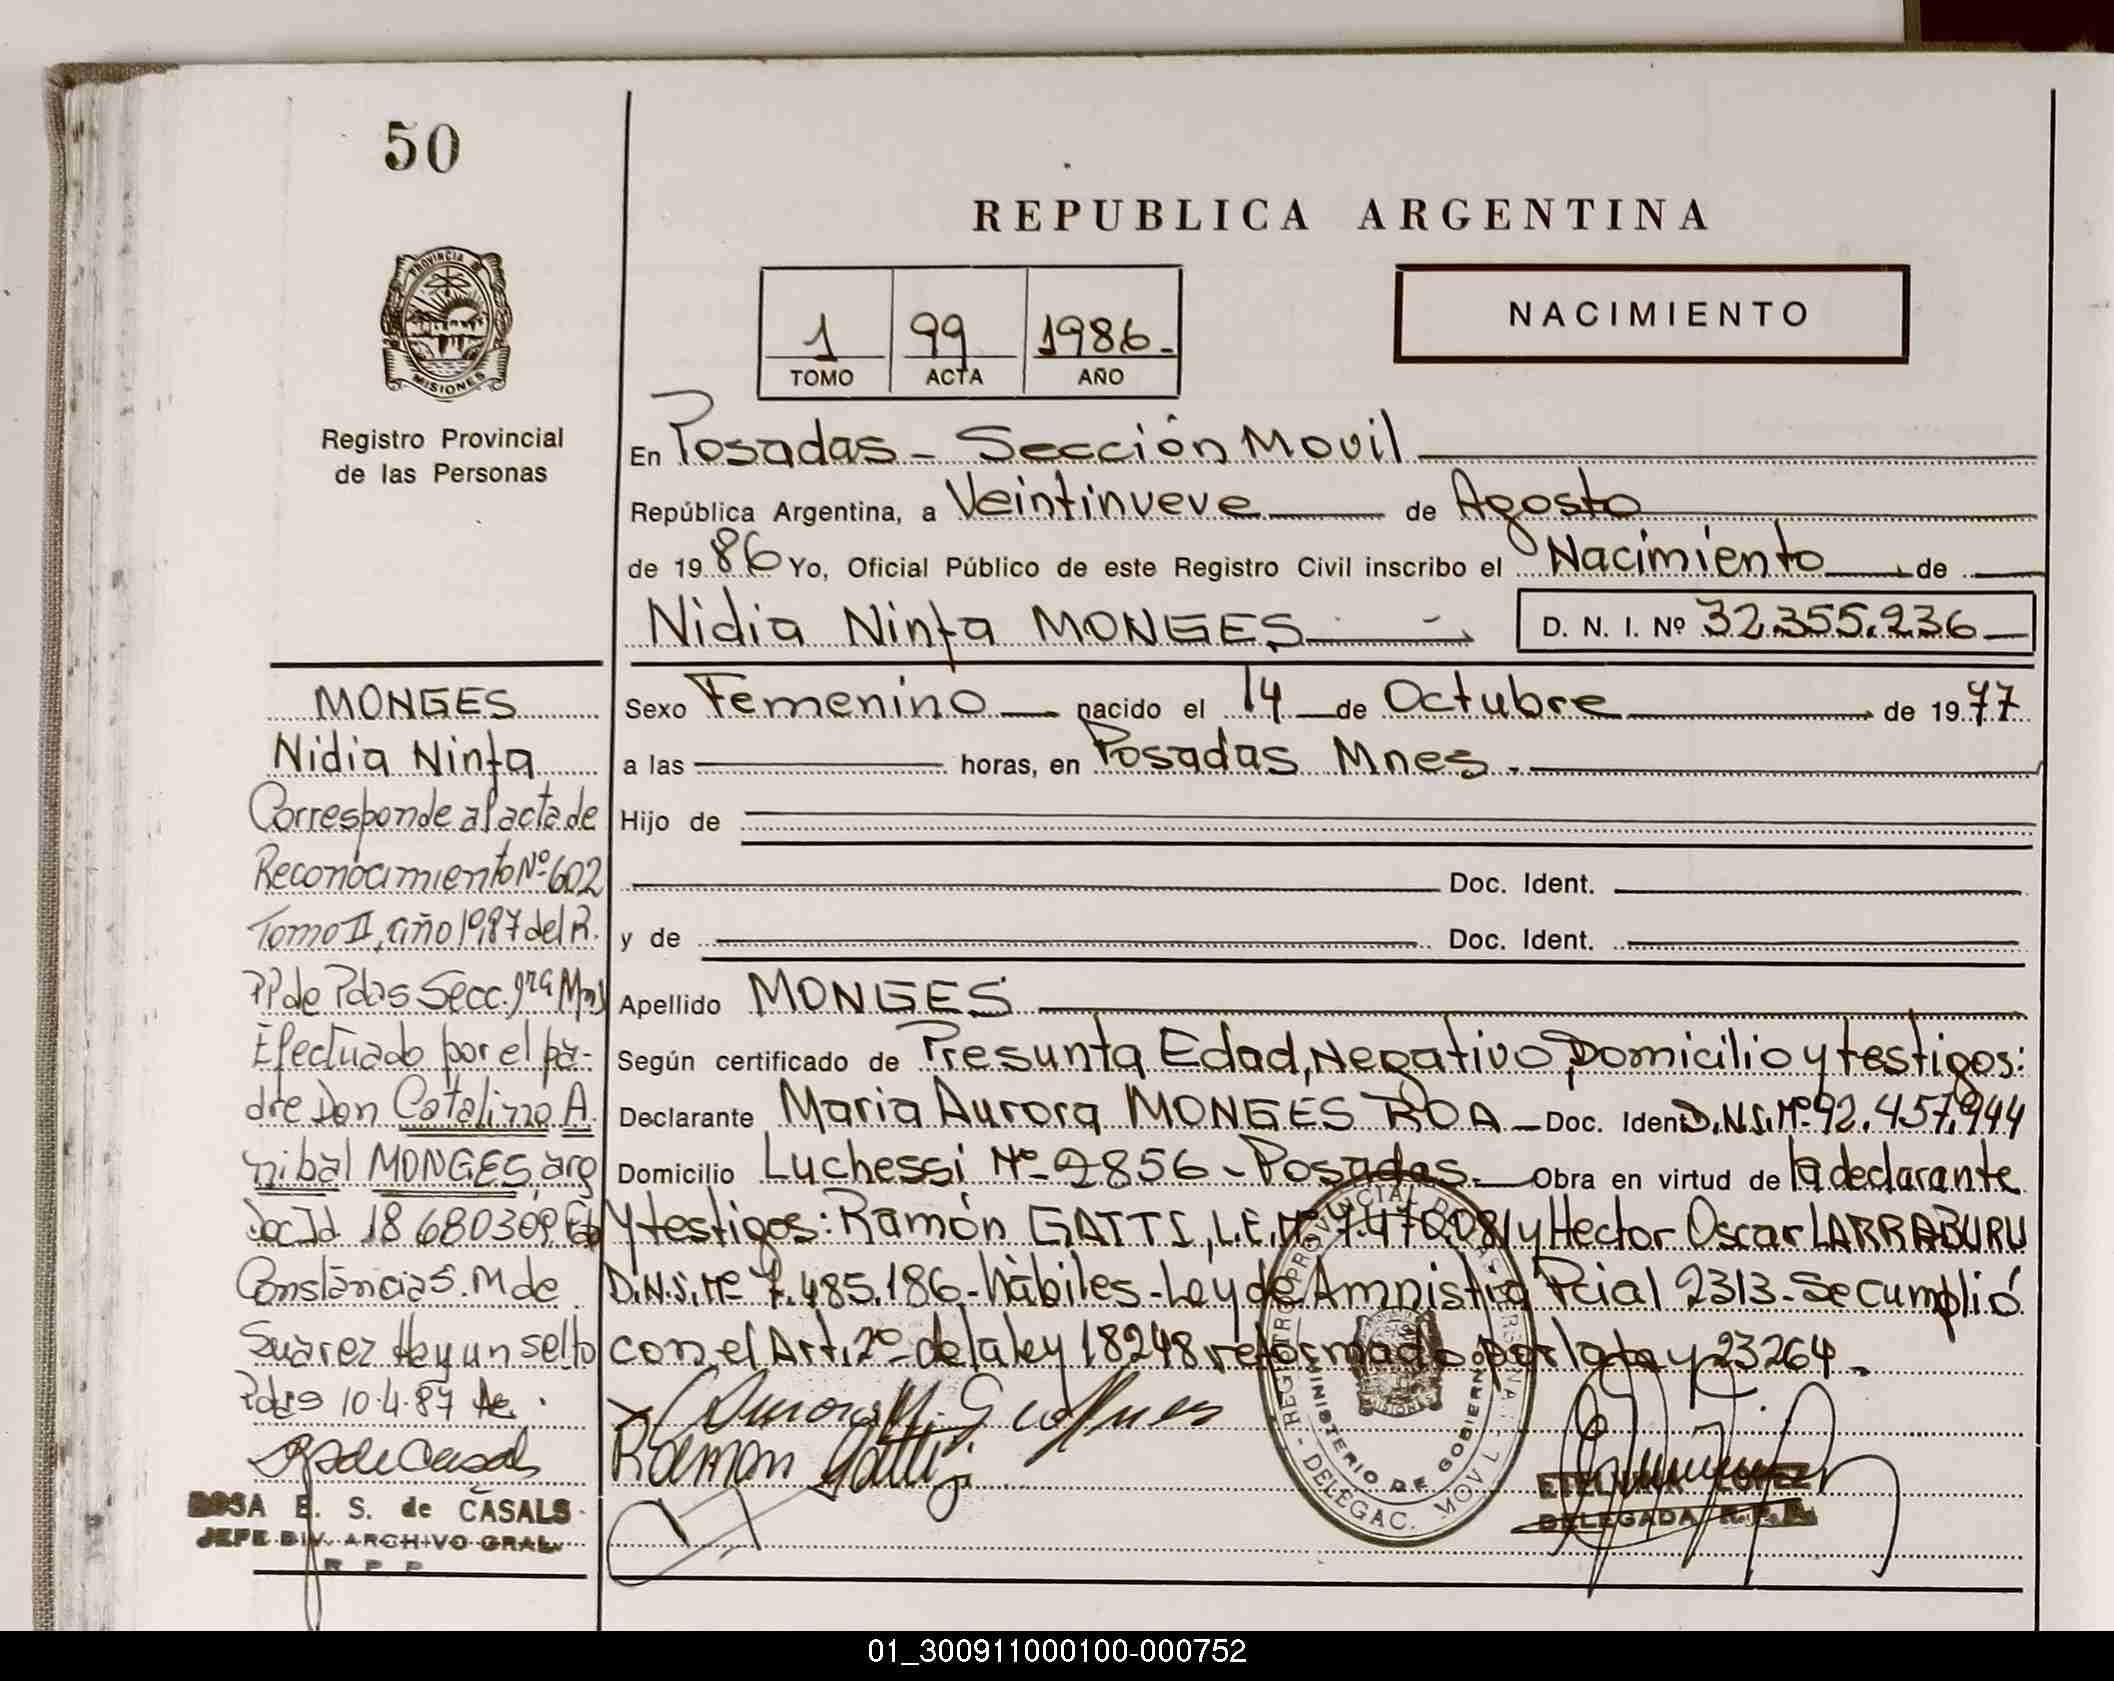 50
REPUBLICA ARGENTINA
PROVINCIA DE
MISIONES
Registro Provincial
de las Personas
1 99 1986.-
TOMO ACTA AÑO
NACIMIENTO
En Posadas - Sección Movil
República Argentina, a Veintinueve de Agosto
de 1986 Yo, Oficial Público de este Registro Civil inscribo el Nacimiento de
Nidia Ninfa MONGES D. N. I. Nº 32.355.236
Sexo Femenino nacido el 14 de Octubre de 1977
a las horas, en Posadas Mnes.
Hijo de
Doc. Ident.
y de Doc. Ident.
Apellido MONGES
Según certificado de Presunta Edad, Negativo, Domicilio y testigos:
Declarante Maria Aurora MONGES ROA - Doc. Ident. D.N.I. Nº 92.457.944
Domicilio Luchessi Nº 2856 - Posadas. Obra en virtud de la declarante
y testigos: Ramón GATTI, L.E. Nº 7.470.081 y Hector Oscar LARRABURU
D.N.I. Nº 7.485.186.- hàbiles - Ley de Amnistia Pcial 2313 - Se cumplió
con el Art. 2º de la ley 18248 reformado por la ley 23264.
Ramon Gatti
REGISTRO PROVINCIAL DE LAS PERSONAS - DELEGAC. MOVIL
MINISTERIO DE GOBIERNO
MISIONES
ETELVINA LOPEZ
DELEGADA R.P.P.
MONGES
Nidia Ninfa
Corresponde al acta de
Reconocimiento Nº 602
Tomo II, año 1987 del R.
PP de Pdas Secc. 1ra Mns
Efectuado por el pa-
dre Don Catalino A
nibal MONGES, arg
Doc Id 18680309
Constancia S. M de
Suarez Hay un sello
Pdas 10.4.87
ROSA E. S. de CASALS
JEFE DIV. ARCHIVO GRAL.
R P P
01_300911000100-000752